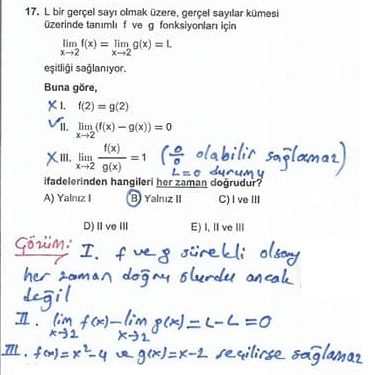 17. L bir gerçel sayı olmak üzere, gerçel sayılar kümesi
üzerinde tanımlı f ve g fonksiyonları için
lim x→2 f(x) = lim x→2 g(x) = L
eşitliği sağlanıyor.
Buna göre,
X I. f(2) = g(2)
✓ II. lim x→2 (f(x) – g(x)) = 0
X III. lim x→2 f(x)/g(x) = 1 (0/0 olabilir sağlamaz)
L=0 durumu
ifadelerinden hangileri her zaman doğrudur?
A) Yalnız I B) Yalnız II C) I ve III
D) II ve III E) I, II ve III
Çözüm: I. f ve g sürekli olsay
her zaman doğru olurdu ancak
değil
II. lim x→2 f(x) – lim x→2 g(x) = L – L = 0
III. f(x) = x²–4 ve g(x) = x–2 seçilirse sağlamaz